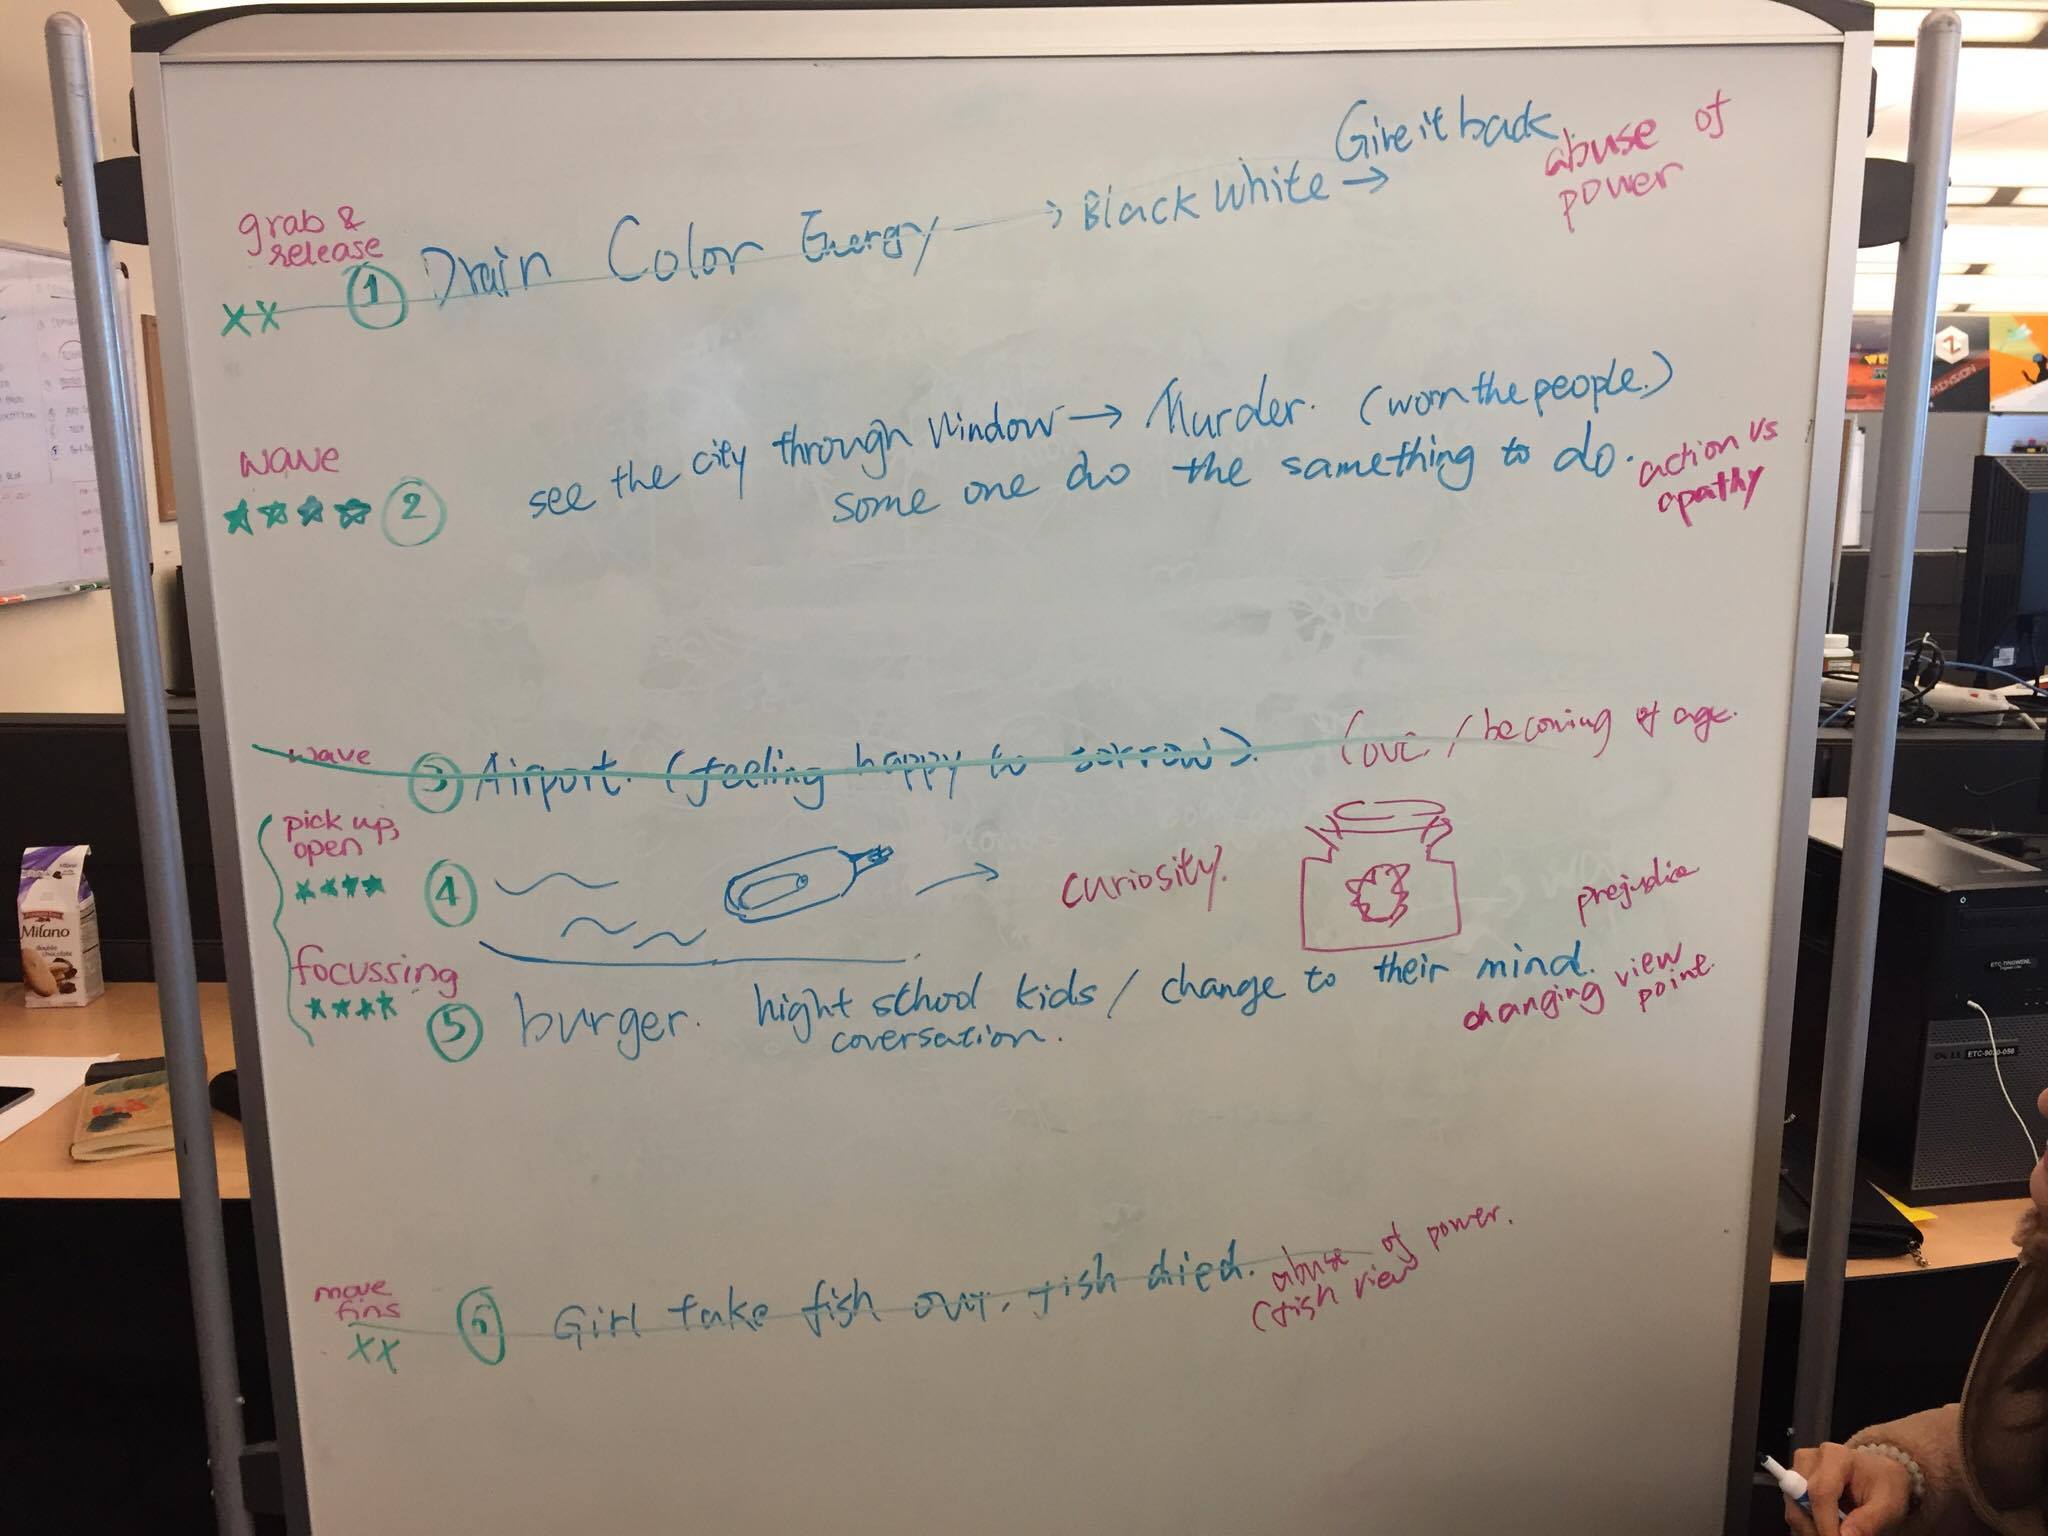 Give it back
abuse of
power
grab &
release
XX 1 Drain Color Energy → Black White →
wave
see the city through Window → Murder. (worn the people.)
2 some one do the samething to do.
action vs
apathy
wave
3 Airport. (feeling happy to sorrow). love / becoming of age.
pick up,
open
4 curiosity.
prejudice
focussing
5 burger. hight school kids / change to their mind.
coversation.
changing view
point.
move
fins
XX 6 Girl take fish out. fish died.
abuse of power.
(fish view
Milano
double
chocolate
MINSION
ETC-9020-050